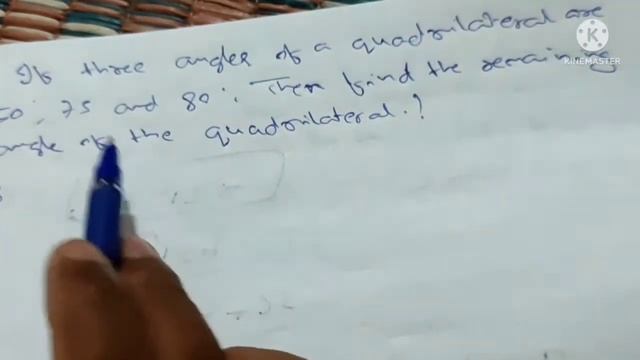 If three angles of a quadrilateral are
50°, 75 and 80°. Then find the remaining
angle of the quadrilateral.?
K
KINEMASTER